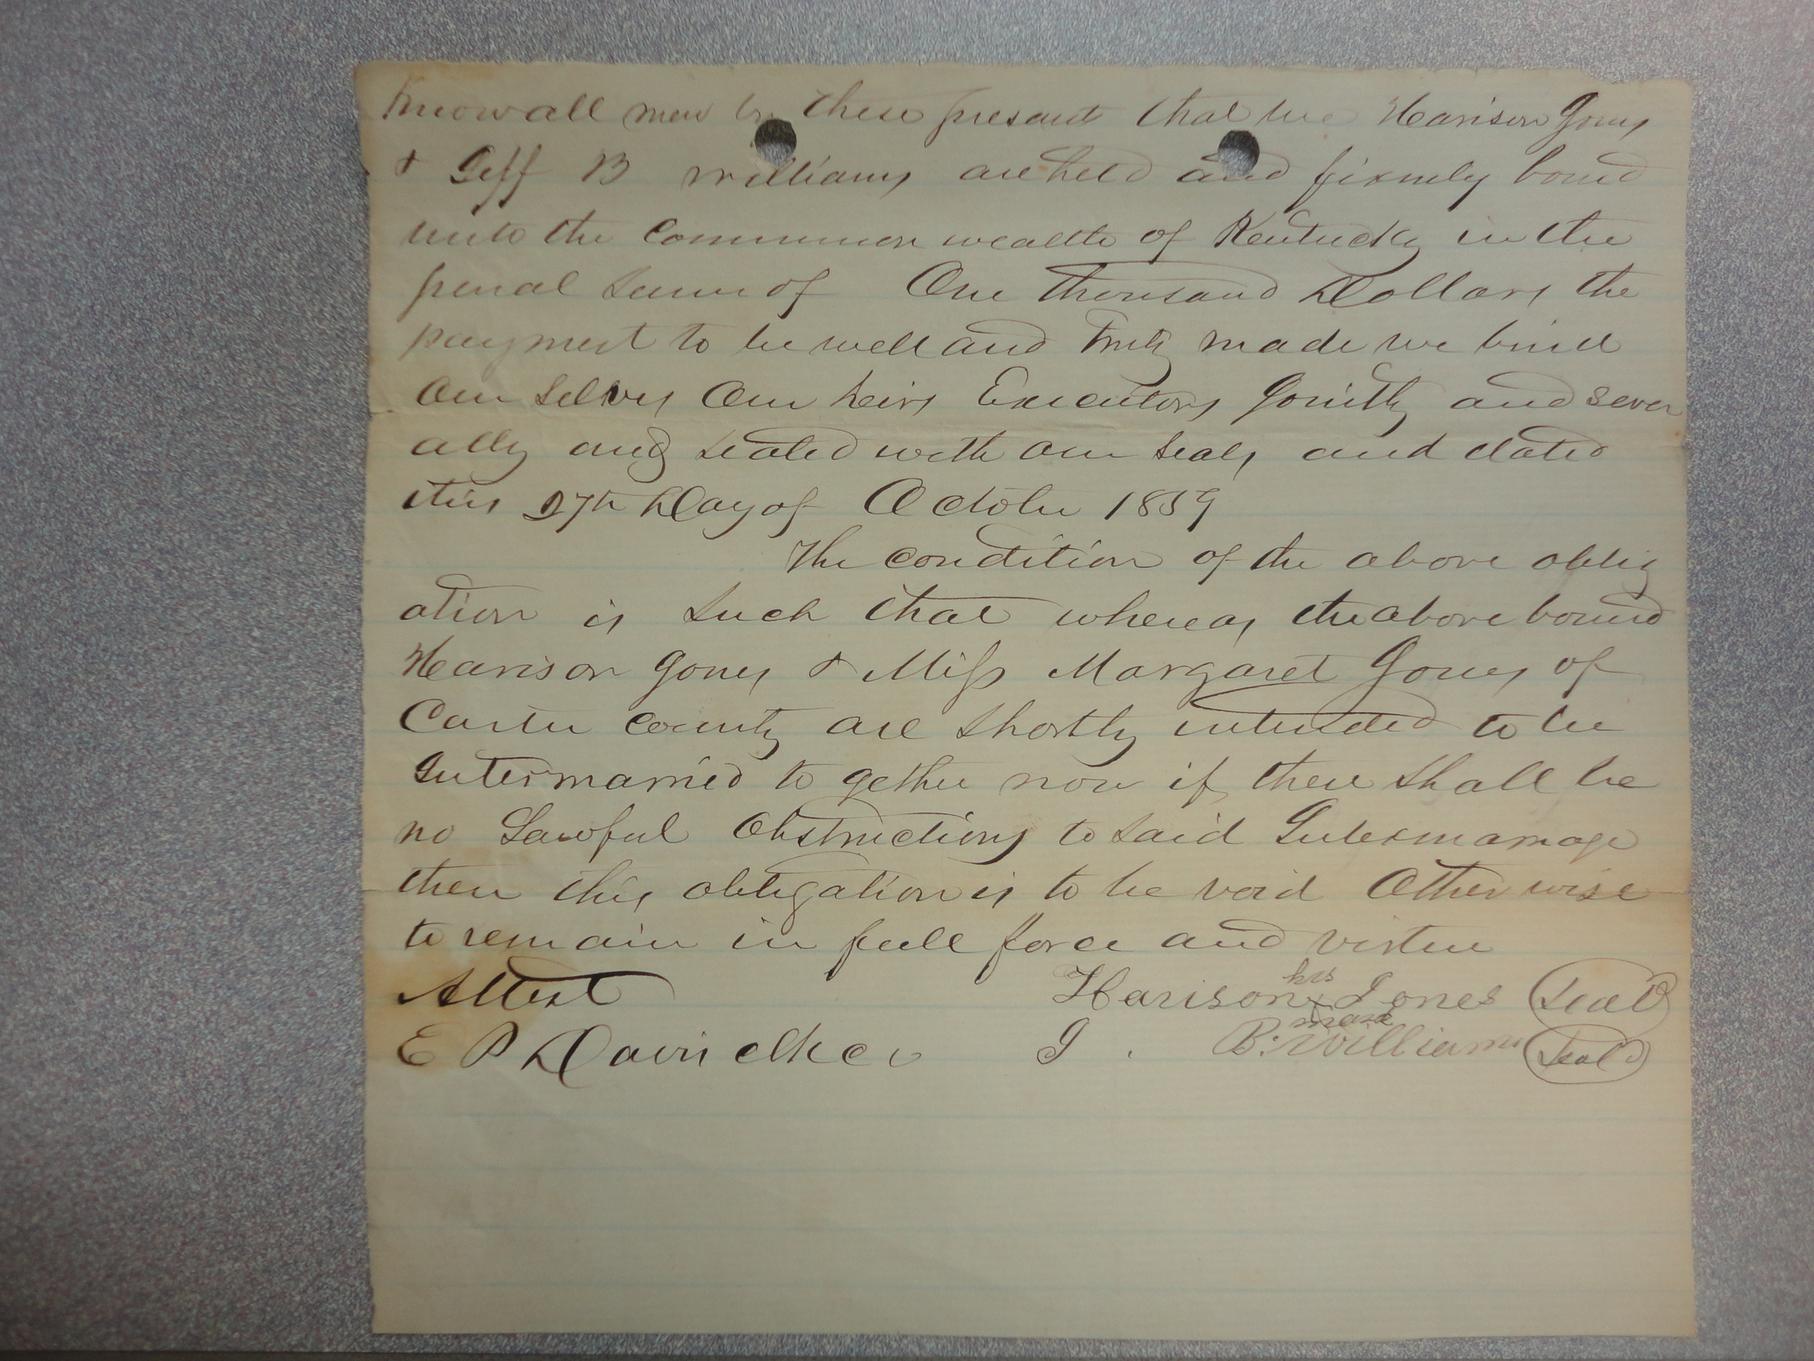 Know all men by these present that we Harison Jones
& Jeff B Williams are held and firmly bound
unto the Common wealth of Kentucky in the
penal sum of One thousand Dollars the
payment to be well and truly made we bind
our selves our heirs Executors Jointly and sever
ally and sealed with our seals and dated
this 27th Day of October 1859
The condition of the above oblig
ation is such that whereas the above bound
Harison Jones & Miss Margaret Jones of
Carter County are shortly intended to be
Intermarried to gether now if there shall be
no Lawful Obstructions to said Intermarriage
then this obligation is to be void Other wise
to remain in full force and virtue
Attest Harison his x mark Jones (Seal)
E P Davis J. B. Williams (Seal)